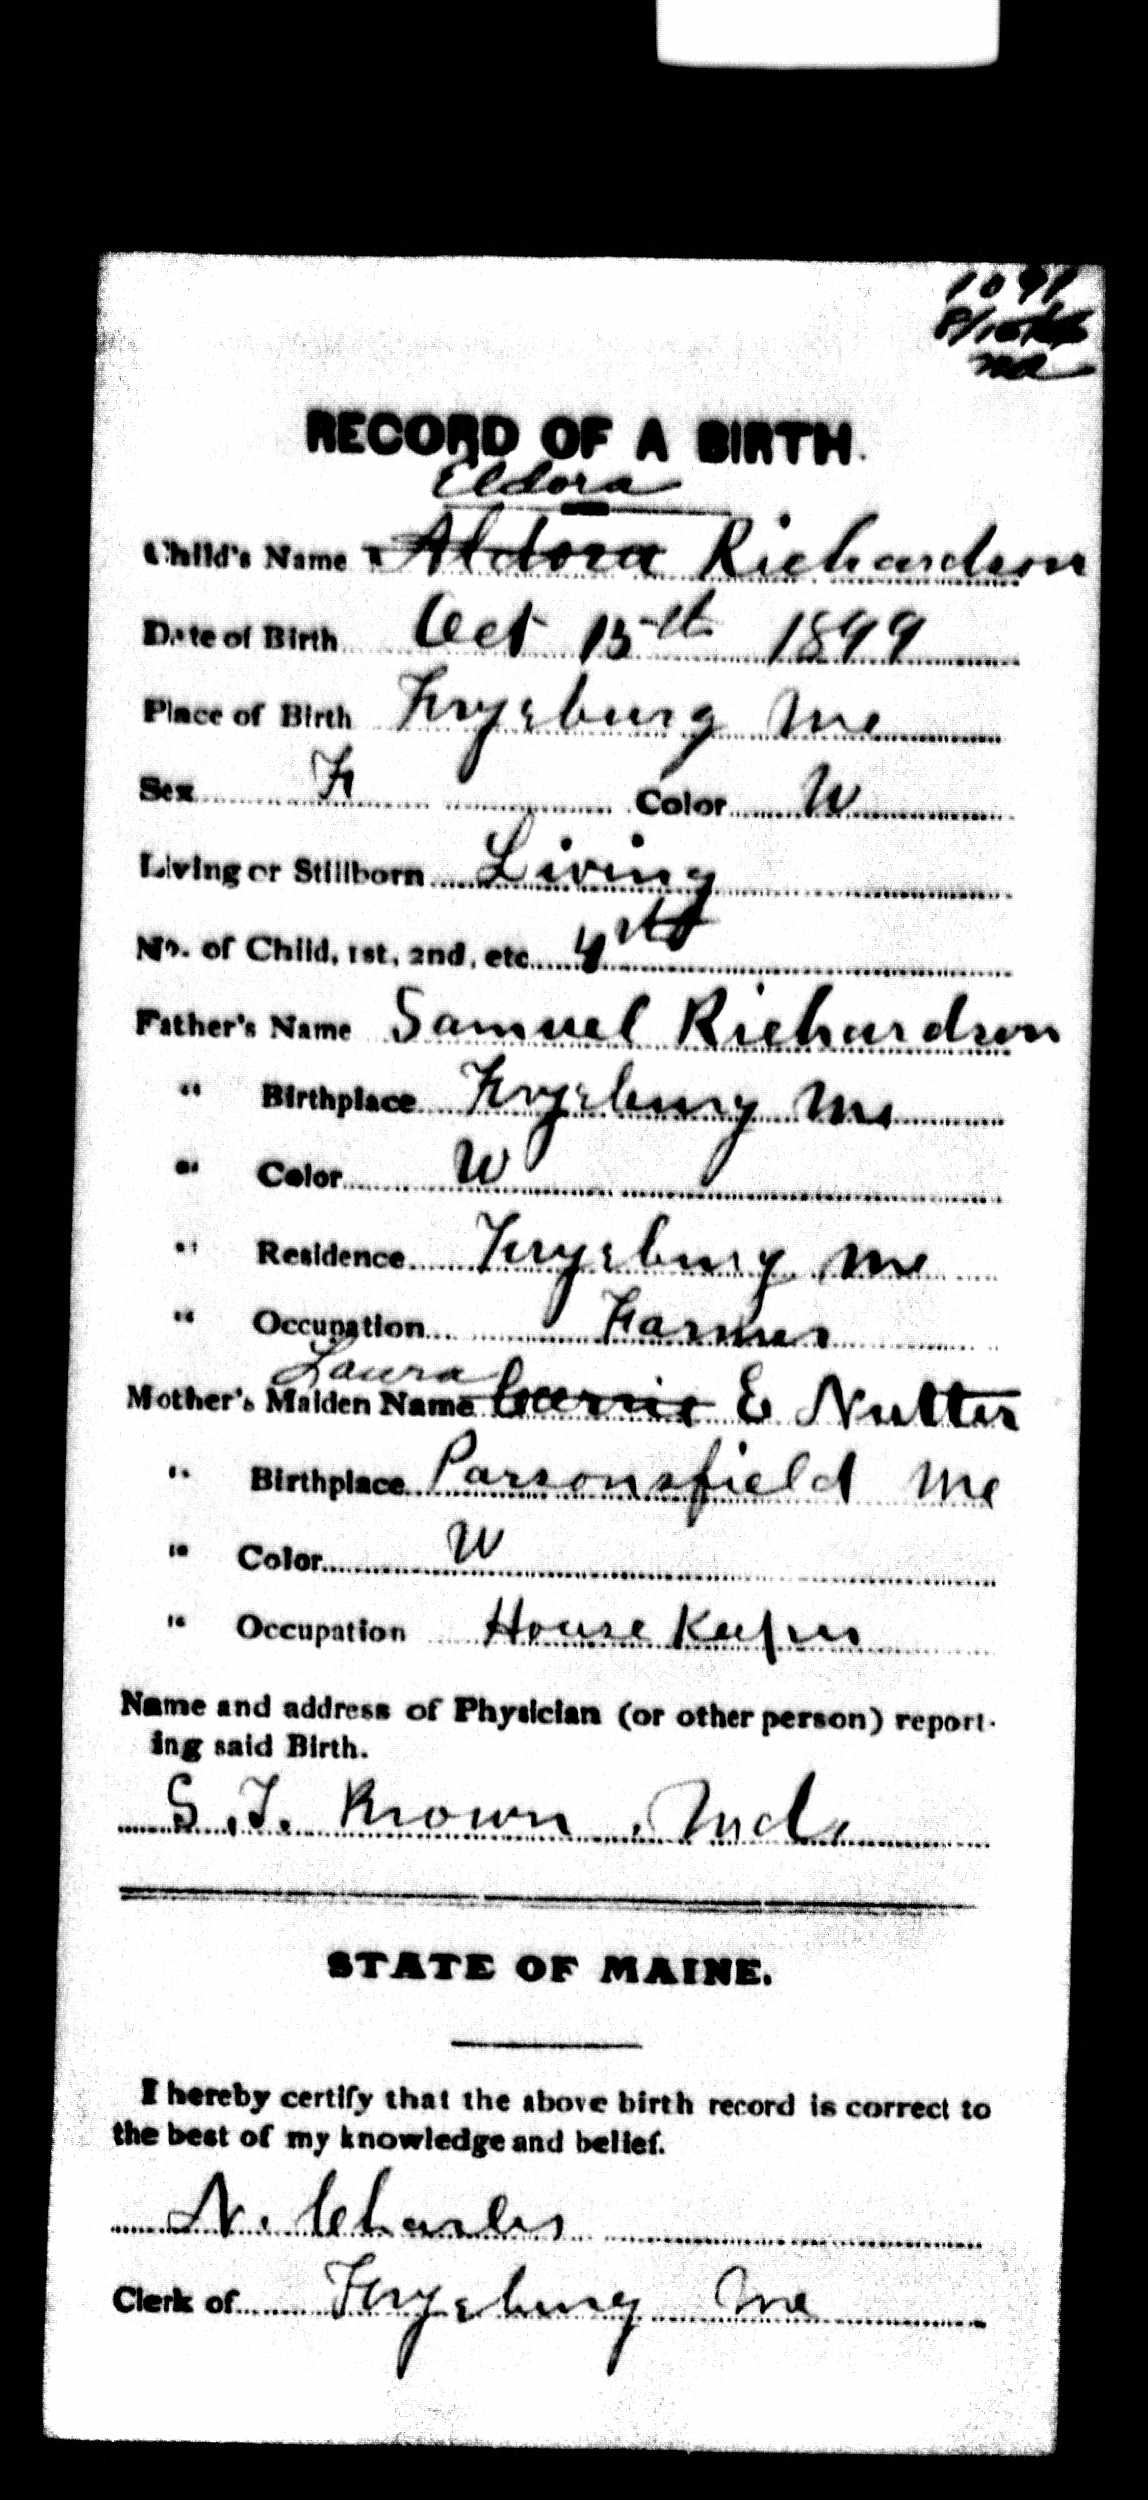 1091
me
RECORD OF A BIRTH.
Eldora
Child's Name Aldora Richardson
Date of Birth Oct 15th 1899
Place of Birth Fryeburg Me
Sex F Color W
Living or Stillborn Living
No. of Child, 1st, 2nd, etc. 4th
Father's Name Samuel Richardson
" Birthplace Fryeburg Me
" Color W
" Residence Fryeburg Me
" Occupation Farmer
Laura
Mother's Maiden Name Carrie E Nutter
" Birthplace Parsonsfield Me
" Color W
" Occupation House Keeper
Name and address of Physician (or other person) report-
ing said Birth.
S. T. Brown, Md.
STATE OF MAINE.
I hereby certify that the above birth record is correct to
the best of my knowledge and belief.
N. Charles
Clerk of Fryeburg Me